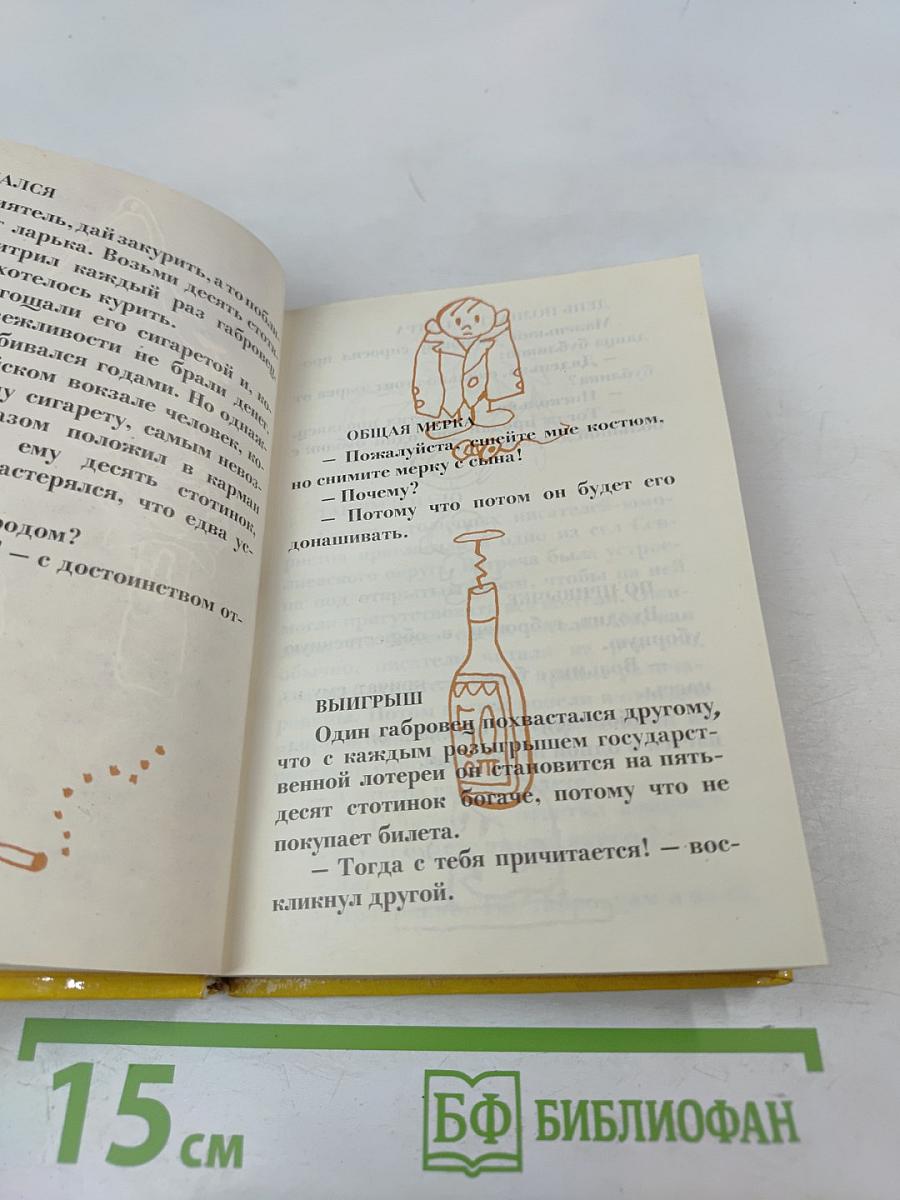 АЛСЯ
иятель, дай закурить, а то побли
ларька. Возьми десять стоти
итрил каждый раз габровец,
хотелось курить.
гощали его сигаретой и, ко-
вежливости не брали денег.
бивался годами. Но однаж-
ском вокзале человек, ко-
у сигарету, самым невоз-
азом положил в карман
ему десять стотинок,
астерялся, что едва ус-
родом?
— с достоинством от-
ОБЩАЯ МЕРКА
— Пожалуйста, сшейте мне костюм,
но снимите мерку с сына!
— Почему?
— Потому что потом он будет его
донашивать.
ВЫИГРЫШ
Один габровец похвастался другому,
что с каждым розыгрышем государст-
венной лотереи он становится на пять-
десят стотинок богаче, потому что не
покупает билета.
— Тогда с тебя причитается! — вос-
кликнул другой.
15 см
БФ БИБЛИОФАН